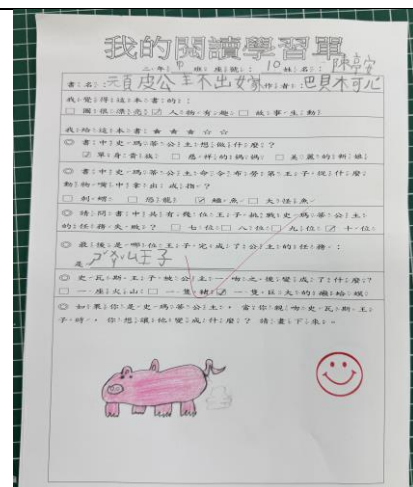 我的閱讀學習單
二年 班 座號：10 姓名：陳亭安
書名：頑皮公主不出嫁 作者：巴貝柯爾
我覺得這本書的：
□圖很漂亮 ☑人物有趣 □故事生動
我給這本書 ★ ★ ★ ☆ ☆
◎書中史瑪蒂公主想做什麼？
☑單身貴族 □慈祥的媽媽 □美麗的新娘
◎書中史瑪蒂公主命令布勞第王子，從什麼
動物嘴中拿出戒指？
□刺蝟 □恐龍 ☑鱷魚 □大怪魚
◎請問書中共有幾位王子挑戰史瑪蒂公主
的任務失敗？ □七位 □八位 □九位 ☑十位
◎最後是哪位王子完成了公主的任務：
是 王子
◎史瓦斯王子被公主一吻之後變成了什麼？
□一座火山 □一隻豬 ☑一隻巨大的癩蛤蟆
◎如果你是史瑪蒂公主，當你親吻史瓦斯王
子時，你想讓他變成什麼？請畫下來。